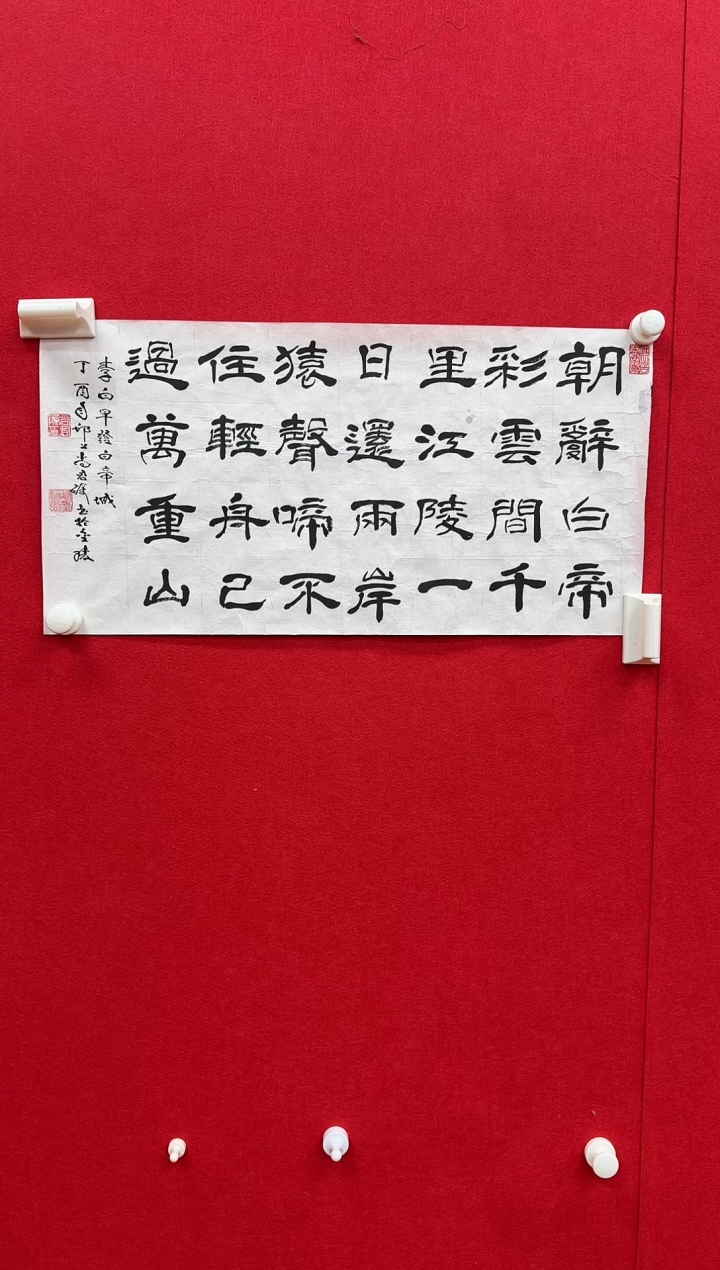 朝辭白帝
彩雲間千
里江陵一
日還兩岸
猿聲啼不
住輕舟已
過萬重山
李白早發白帝城
丁酉 書於金陵